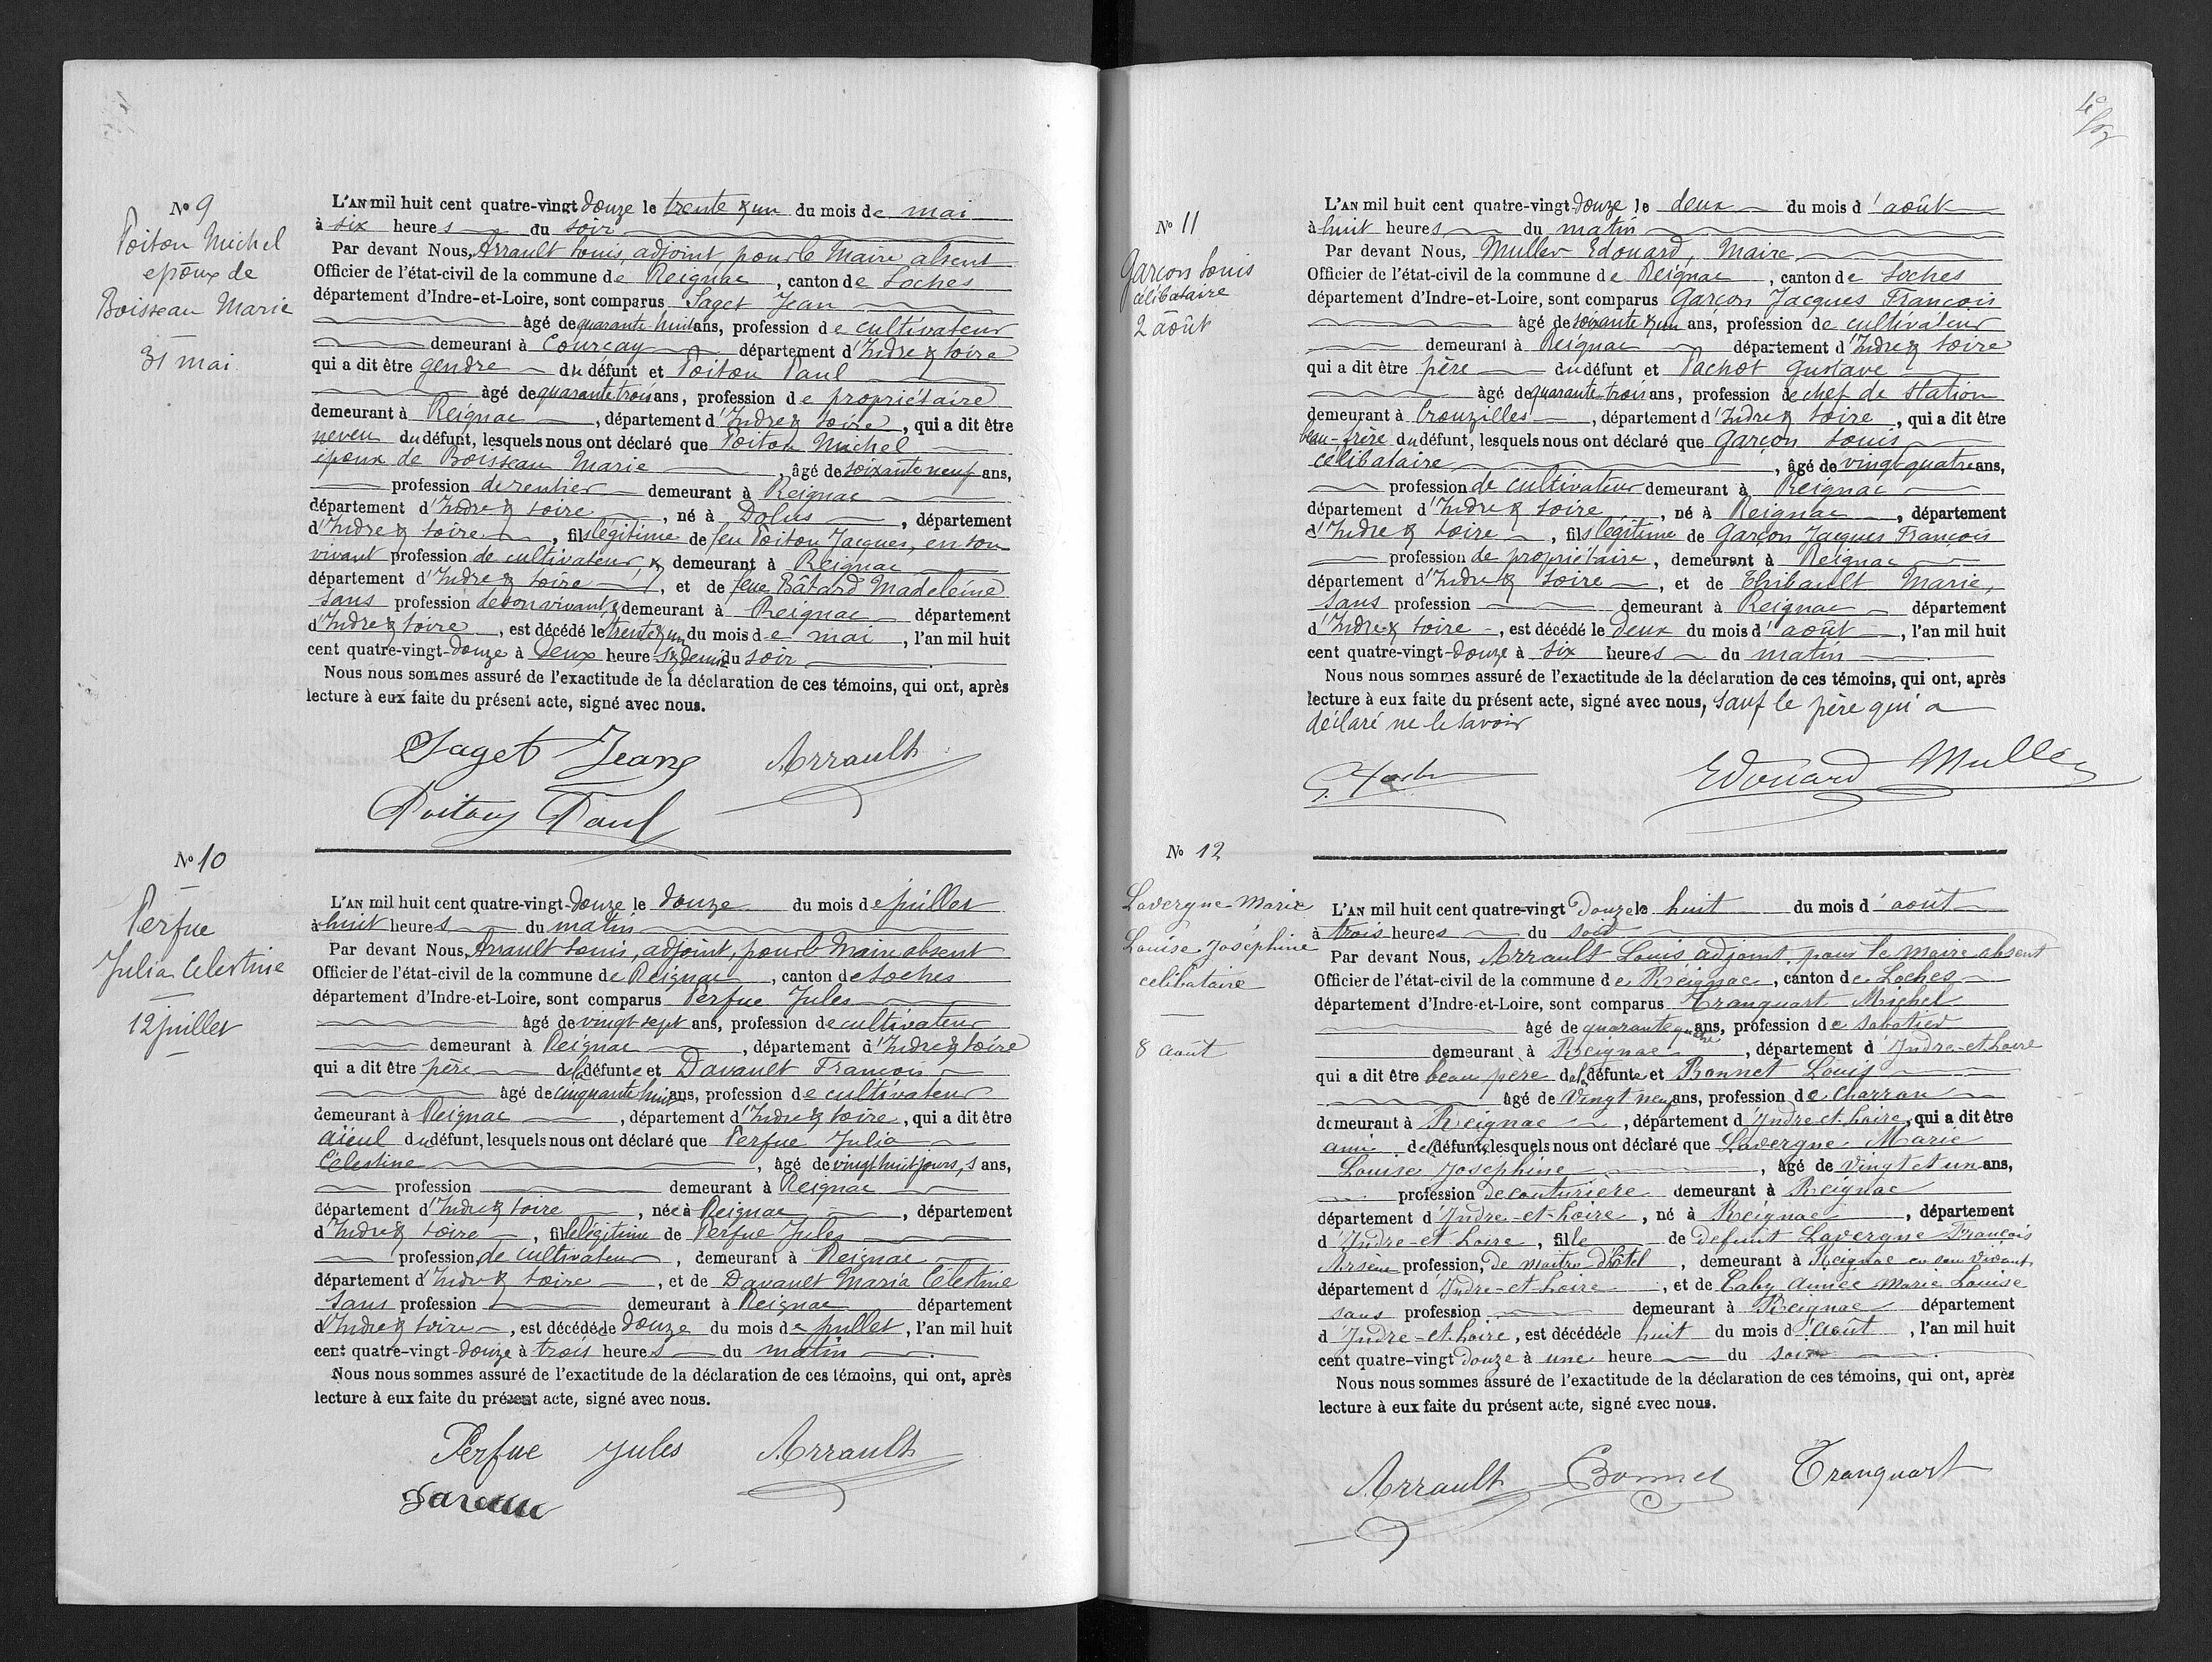 Nº 9
Poitou Michel
époux de
Boisseau Marie
31 mai
L'AN mil huit cent quatre-vingt douze le trente & un du mois de mai
à six heures du soir
Par devant Nous, Arrault Louis, adjoint, pour le Maire absent
Officier de l'état-civil de la commune de Reignac, canton de Loches
département d'Indre-et-Loire, sont comparus Saget Jean
âgé de quarante huit ans, profession de cultivateur
demeurant à Courçay département d'Indre & Loire
qui a dit être gendre du défunt et Poitou Paul
âgé de quarante trois ans, profession de propriétaire
demeurant à Reignac, département d'Indre & Loire, qui a dit être
neveu du défunt, lesquels nous ont déclaré que Poitou Michel
époux de Boisseau Marie, âgé de soixante neuf ans,
profession de rentier demeurant à Reignac
département d'Indre & Loire, né à Dolus, département
d'Indre & Loire, fils légitime de feu Poitou Jacques, en son
vivant profession de cultivateur, & demeurant à Reignac
département d'Indre & Loire, et de feue Bâtard Madeleine
sans profession de son vivant, & demeurant à Reignac département
d'Indre & Loire, est décédé le trente & un du mois de mai, l'an mil huit
cent quatre-vingt-douze à deux heures & demie du soir
Nous nous sommes assuré de l'exactitude de la déclaration de ces témoins, qui ont, après
lecture à eux faite du présent acte, signé avec nous.
Saget Jean Arrault
Poitou Paul
Nº 10
Perfue
Julia Célestine
12 juillet
L'AN mil huit cent quatre-vingt-douze le douze du mois de juillet
à huit heures du matin
Par devant Nous, Arrault Louis, adjoint, pour le Maire absent
Officier de l'état-civil de la commune de Reignac, canton de Loches
département d'Indre-et-Loire, sont comparus Perfue Jules
âgé de vingt sept ans, profession de cultivateur
demeurant à Reignac, département d'Indre & Loire
qui a dit être père de la défunte et Davault François
âgé de cinquante huit ans, profession de cultivateur
demeurant à Reignac, département d'Indre & Loire, qui a dit être
aïeul du défunt, lesquels nous ont déclaré que Perfue Julia
Célestine, âgé de vingt huit jours, s ans,
profession demeurant à Reignac
département d'Indre & Loire, née à Reignac, département
d'Indre & Loire, fille légitime de Perfue Jules
profession de cultivateur, demeurant à Reignac
département d'Indre & Loire, et de Davault Maria Célestine
sans profession demeurant à Reignac département
d'Indre & Loire, est décédée le douze du mois de juillet, l'an mil huit
cent quatre-vingt-douze à trois heures du matin
Nous nous sommes assuré de l'exactitude de la déclaration de ces témoins, qui ont, après
lecture à eux faite du présent acte, signé avec nous.
Perfue Jules Arrault
Nº 11
Garçon Louis
célibataire
2 août
L'AN mil huit cent quatre-vingt-douze le deux du mois d'août
à huit heures du matin
Par devant Nous, Muller Edouard, Maire
Officier de l'état-civil de la commune de Reignac, canton de Loches
département d'Indre-et-Loire, sont comparus Garçon Jacques François
âgé de soixante & un ans, profession de cultivateur
demeurant à Reignac département d'Indre & Loire
qui a dit être père du défunt et Pachot Gustave
âgé de quarante-trois ans, profession de chef de station
demeurant à Crouzilles, département d'Indre & Loire, qui a dit être
beau-frère du défunt, lesquels nous ont déclaré que Garçon Louis
célibataire, âgé de vingt-quatre ans,
profession de cultivateur demeurant à Reignac
département d'Indre & Loire, né à Reignac, département
d'Indre & Loire, fils légitime de Garçon Jacques François
profession de propriétaire, demeurant à Reignac
département d'Indre & Loire, et de Thibault Marie,
sans profession demeurant à Reignac département
d'Indre & Loire, est décédé le deux du mois d'août, l'an mil huit
cent quatre-vingt-douze à six heures du matin
Nous nous sommes assuré de l'exactitude de la déclaration de ces témoins, qui ont, après
lecture à eux faite du présent acte, signé avec nous, sauf le père qui a
déclaré ne le savoir
Edouard Muller
Nº 12
Lavergne Marie
Louise Joséphine
célibataire
8 août
L'AN mil huit cent quatre-vingt Douze le huit du mois d'août
à trois heures du soir
Par devant Nous, Arrault Louis adjoint pour le maire absent
Officier de l'état-civil de la commune de Reignac, canton de Loches
département d'Indre-et-Loire, sont comparus Tranquart Michel
âgé de quarante quatre ans, profession de sabotier
demeurant à Reignac, département d'Indre-et-Loire
qui a dit être beau père de la défunte et Bonnet Louis
âgé de vingt neuf ans, profession de Charron
demeurant à Reignac, département d'Indre-et-Loire, qui a dit être
ami de la défunte, lesquels nous ont déclaré que Lavergne Marie
Louise Joséphine, âgé de vingt et un ans,
profession de couturière demeurant à Reignac
département d'Indre-et-Loire, né à Reignac, département
d'Indre-et-Loire, fille de défunt Lavergne François
Arsène profession, de maître d'hôtel, demeurant à Reignac en son vivant
département d'Indre-et-Loire, et de Caby Aimée Marie Louise
sans profession demeurant à Reignac département
d'Indre-et-Loire, est décédée le huit du mois d'août, l'an mil huit
cent quatre-vingt douze à une heure du soir
Nous nous sommes assuré de l'exactitude de la déclaration de ces témoins, qui ont, après
lecture à eux faite du présent acte, signé avec nous.
Arrault Bonnet Tranquart